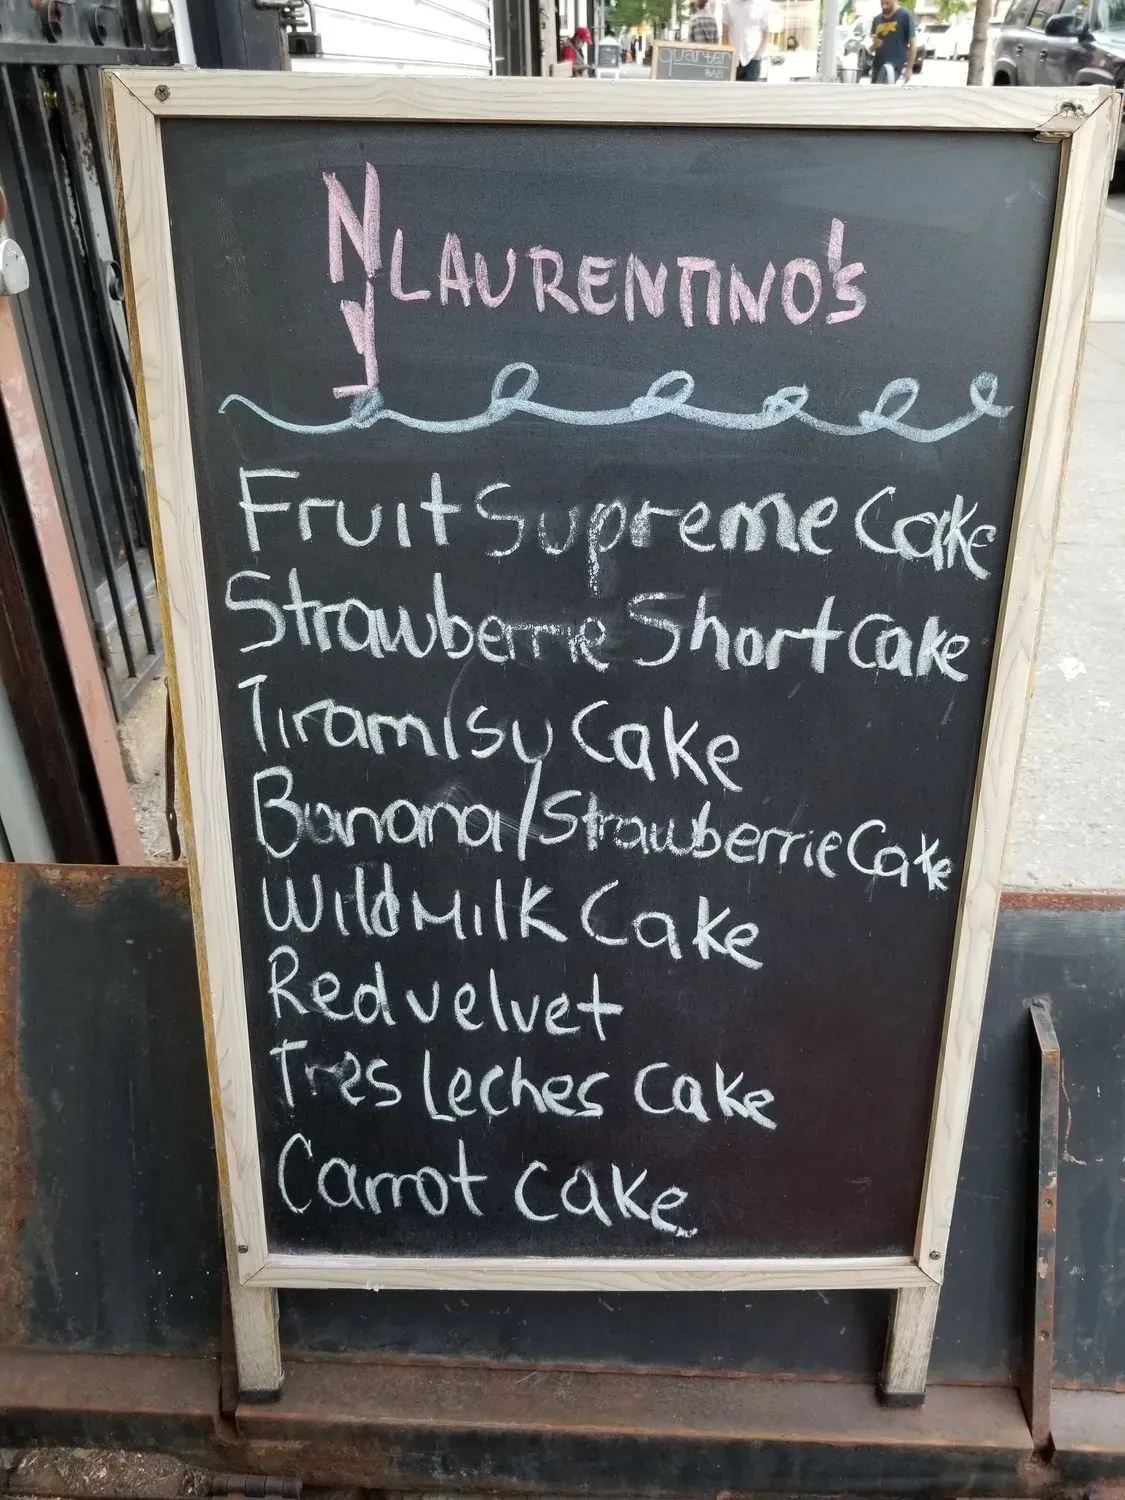 quarter
BAR
NY LAURENTINO'S
Fruit Supreme Cake
Strawberrie Short Cake
Tiramisu Cake
Banana/Strawberrie Cake
WildMilk Cake
Red velvet
Tres Leches Cake
Carrot cake